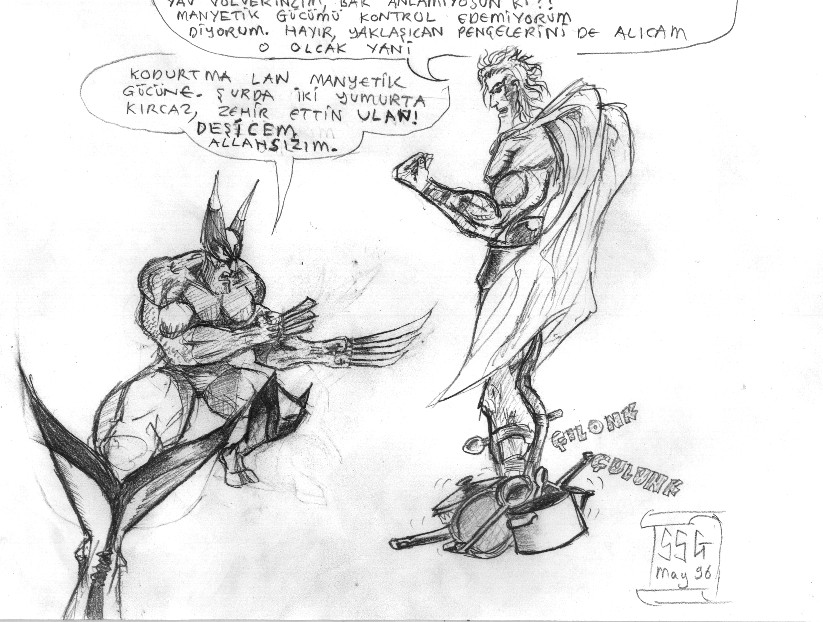 YAV VOLVERİNZİM, BAK ANLAMIYOSUN Kİ??
MANYETİK GÜCÜMÜ KONTROL EDEMİYORUM
DİYORUM. HAYIR, YAKLAŞICAN PENÇELERİNİ DE ALICAM
O OLCAK YANİ
KODURTMA LAN MANYETİK
GÜCÜNE. ŞURDA İKİ YUMURTA
KIRCAZ, ZEHİR ETTİN ULAN!
DEŞİCEM
ALLAHSIZIM.
ÇILONK
ÇULUNK
SSG
May 96